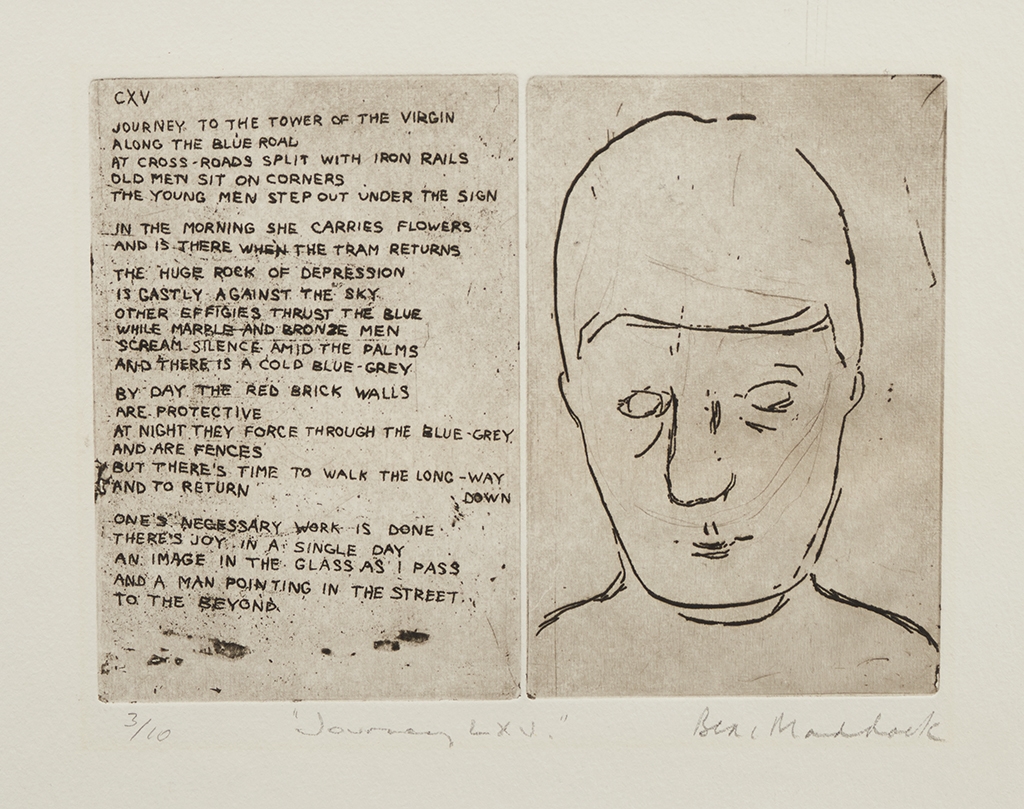 CXV
JOURNEY TO THE TOWER OF THE VIRGIN
ALONG THE BLUE ROAD
AT CROSS-ROADS SPLIT WITH IRON RAILS
OLD MEN SIT ON CORNERS
THE YOUNG MEN STEP OUT UNDER THE SIGN
IN THE MORNING SHE CARRIES FLOWERS
AND IS THERE WHEN THE TRAM RETURNS
THE HUGE ROCK OF DEPRESSION
IS GASTLY AGAINST THE SKY
OTHER EFFIGIES THRUST THE BLUE
WHILE MARBLE AND BRONZE MEN
SCREAM SILENCE AMID THE PALMS
AND THERE IS A COLD BLUE-GREY
BY DAY THE RED BRICK WALLS
ARE PROTECTIVE
AT NIGHT THEY FORCE THROUGH THE BLUE-GREY
AND ARE FENCES
BUT THERE'S TIME TO WALK THE LONG-WAY
DOWN
AND TO RETURN
ONE'S NECESSARY WORK IS DONE
THERE'S JOY IN A SINGLE DAY
AN IMAGE IN THE GLASS AS I PASS
AND A MAN POINTING IN THE STREET
TO THE BEYOND
3/10 "Journey LXV." Bea Maddock